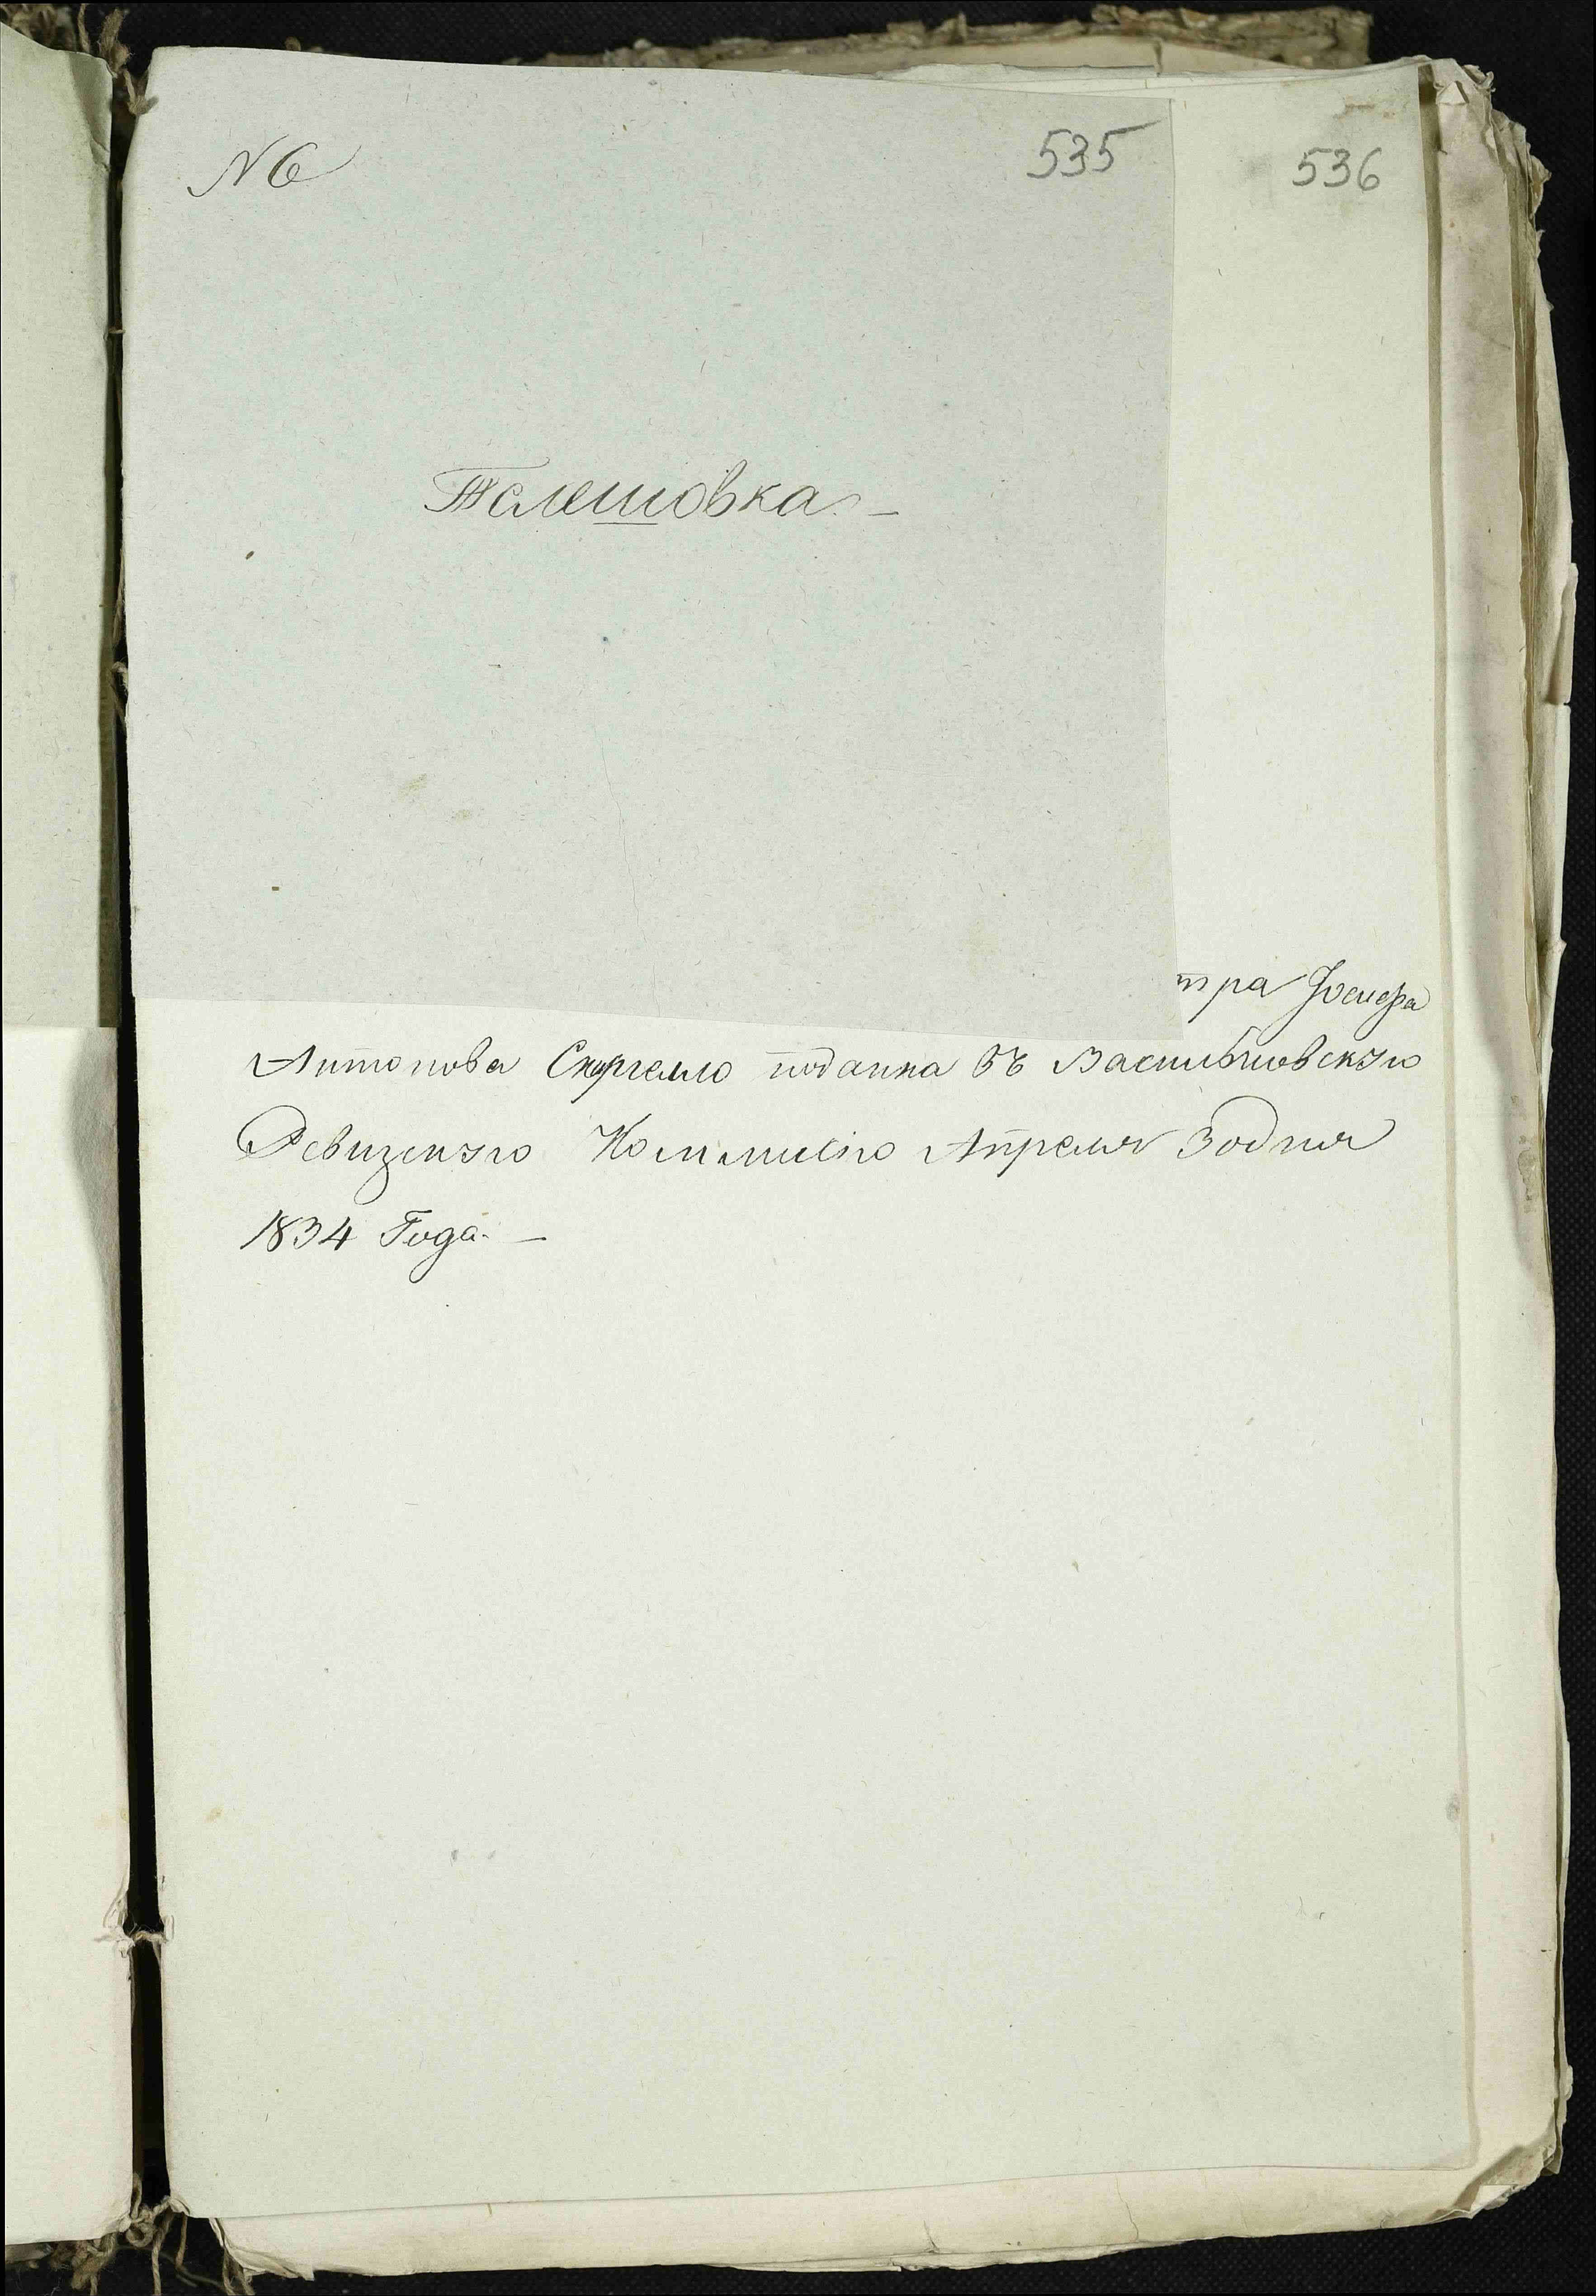 N 6
535
536
Телешовка. –
тра Іосифа
Антонова Скергелло подана въ Васильковскую
Ревизскую Коммисію Апреля 30 дня
1834 Года. –